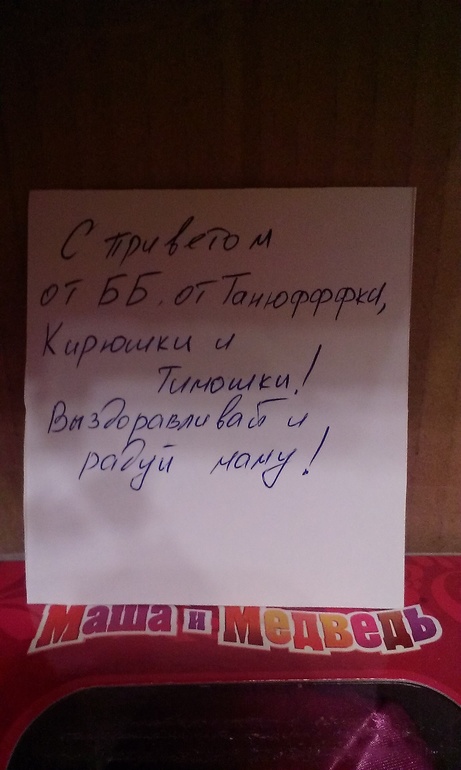 С приветом
от ББ, от Танюфффки,
Кирюшки и
Тимошки!
Выздоравливай и
радуй маму!
Маша и Медведь